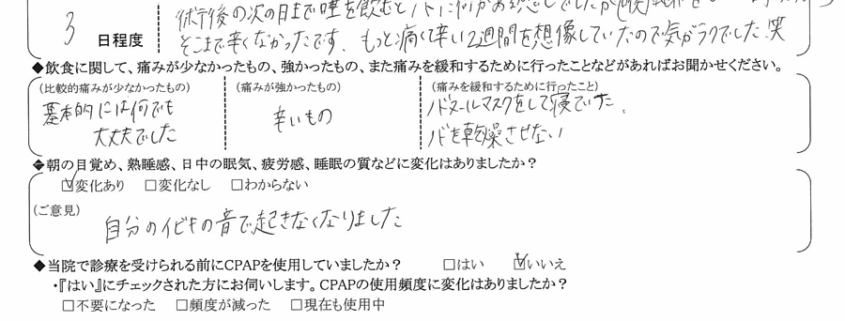 術後の次の日まで唾を飲むと
3 日程度 そこまで辛くなかったです。もっと痛くて辛い2週間を想像していたので気がラクでした 笑
◆飲食に関して、痛みが少なかったもの、強かったもの、また痛みを緩和するために行ったことなどがあればお聞かせください。
(比較的痛みが少なかったもの) (痛みが強かったもの) (痛みを緩和するために行ったこと)
基本的には何でも 辛いもの マスクをして寝ていた、
大丈夫でした を乾燥させない
◆朝の目覚め、熟睡感、日中の眠気、疲労感、睡眠の質などに変化はありましたか?
☑変化あり □変化なし □わからない
(ご意見) 自分のイビキの音で起きなくなりました
◆当院で診療を受けられる前にCPAPを使用していましたか? □はい ☑いいえ
・『はい』にチェックされた方にお伺いします。CPAPの使用頻度に変化はありましたか?
□不要になった □頻度が減った □現在も使用中